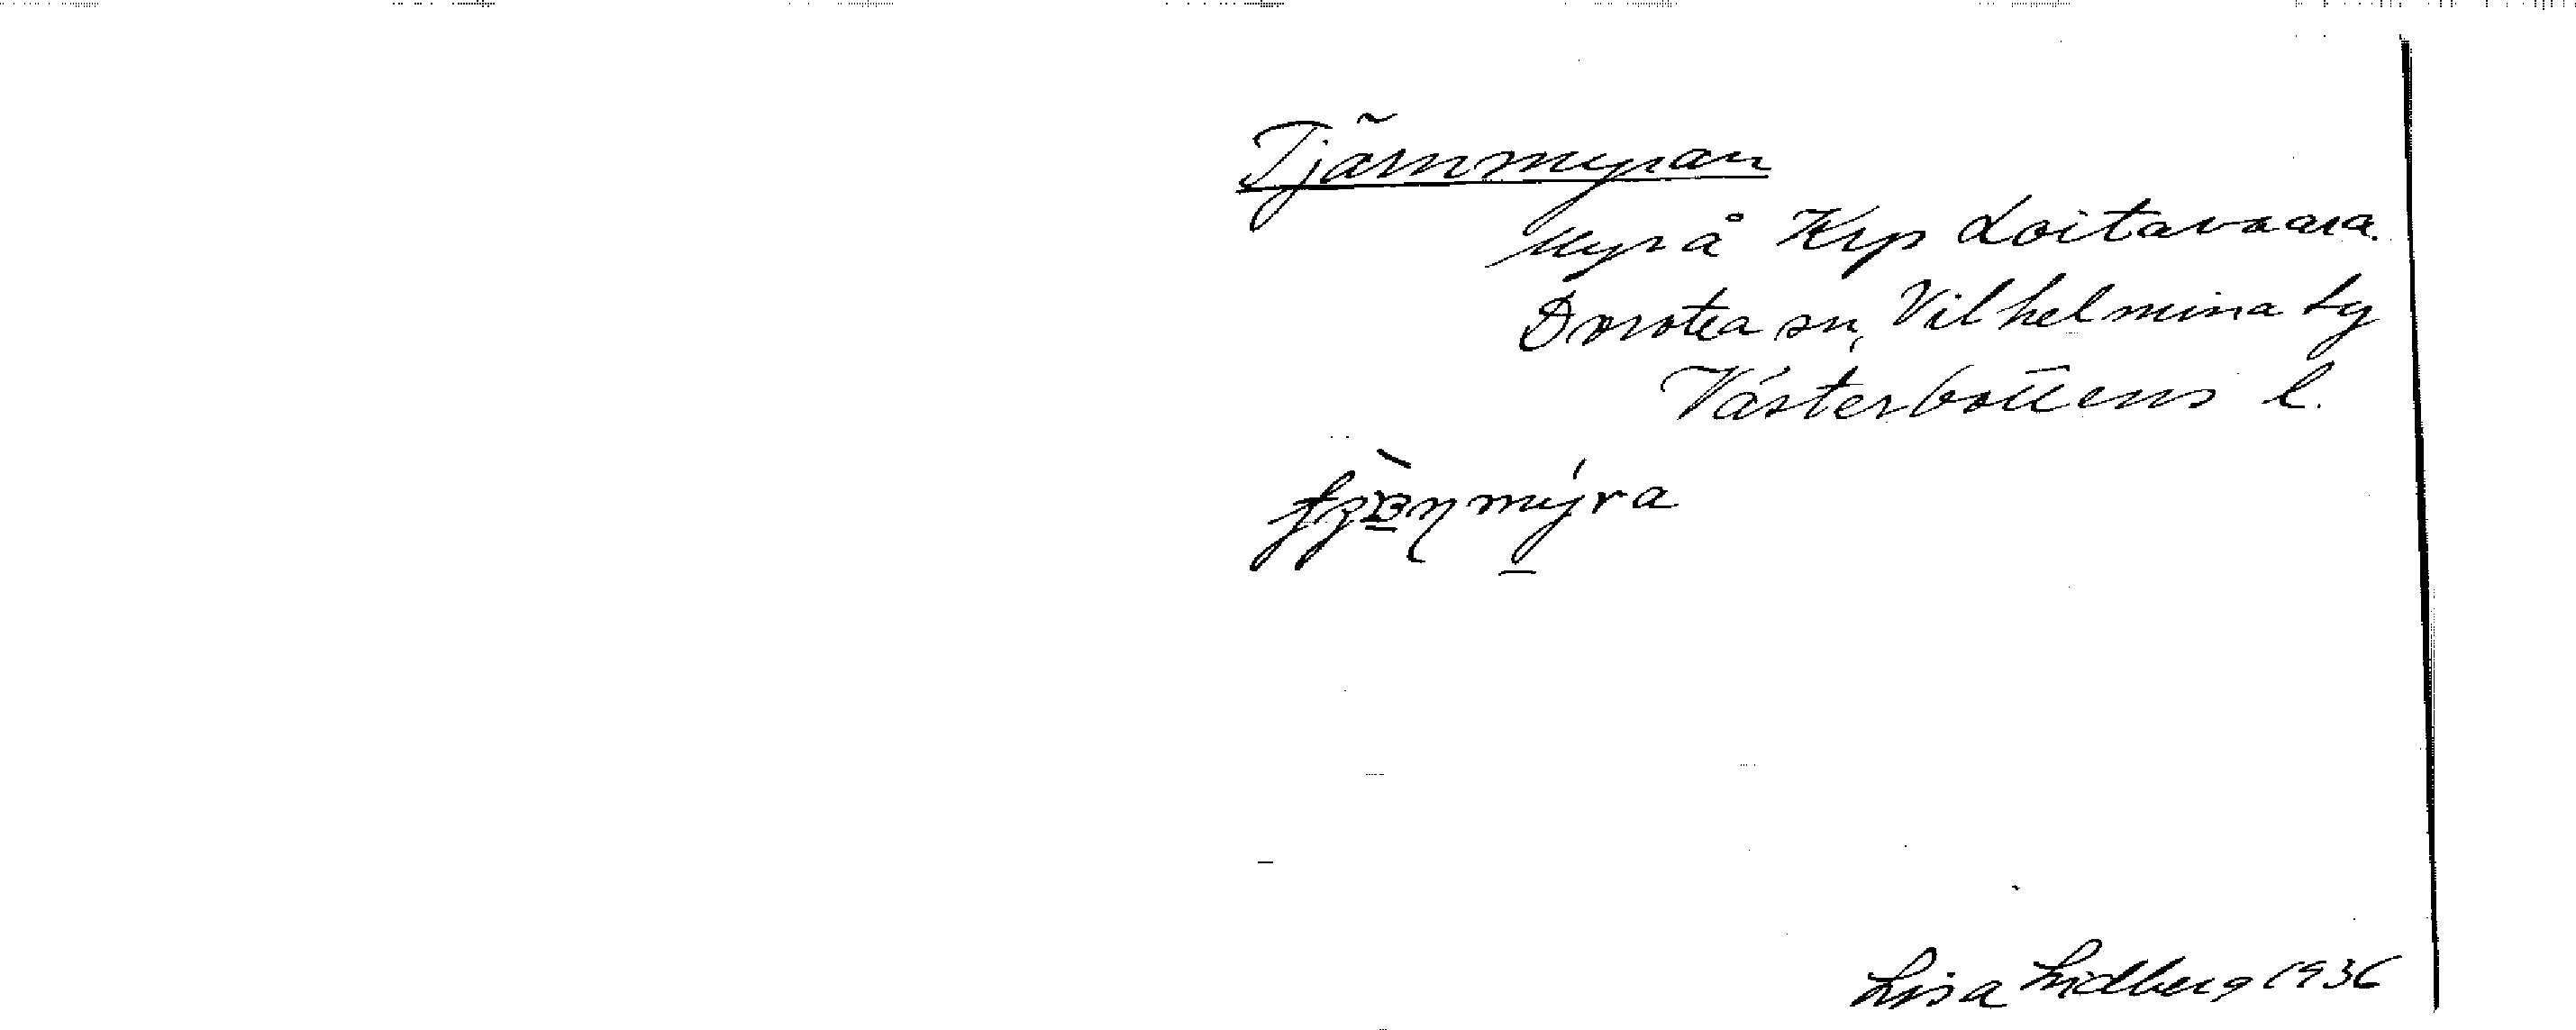 Tjärnmyran
Myr å Krp Loitavaara.
Dorotea sn, Vilhelmina tg
Västerbottens l.
Lisa Lidberg 1936